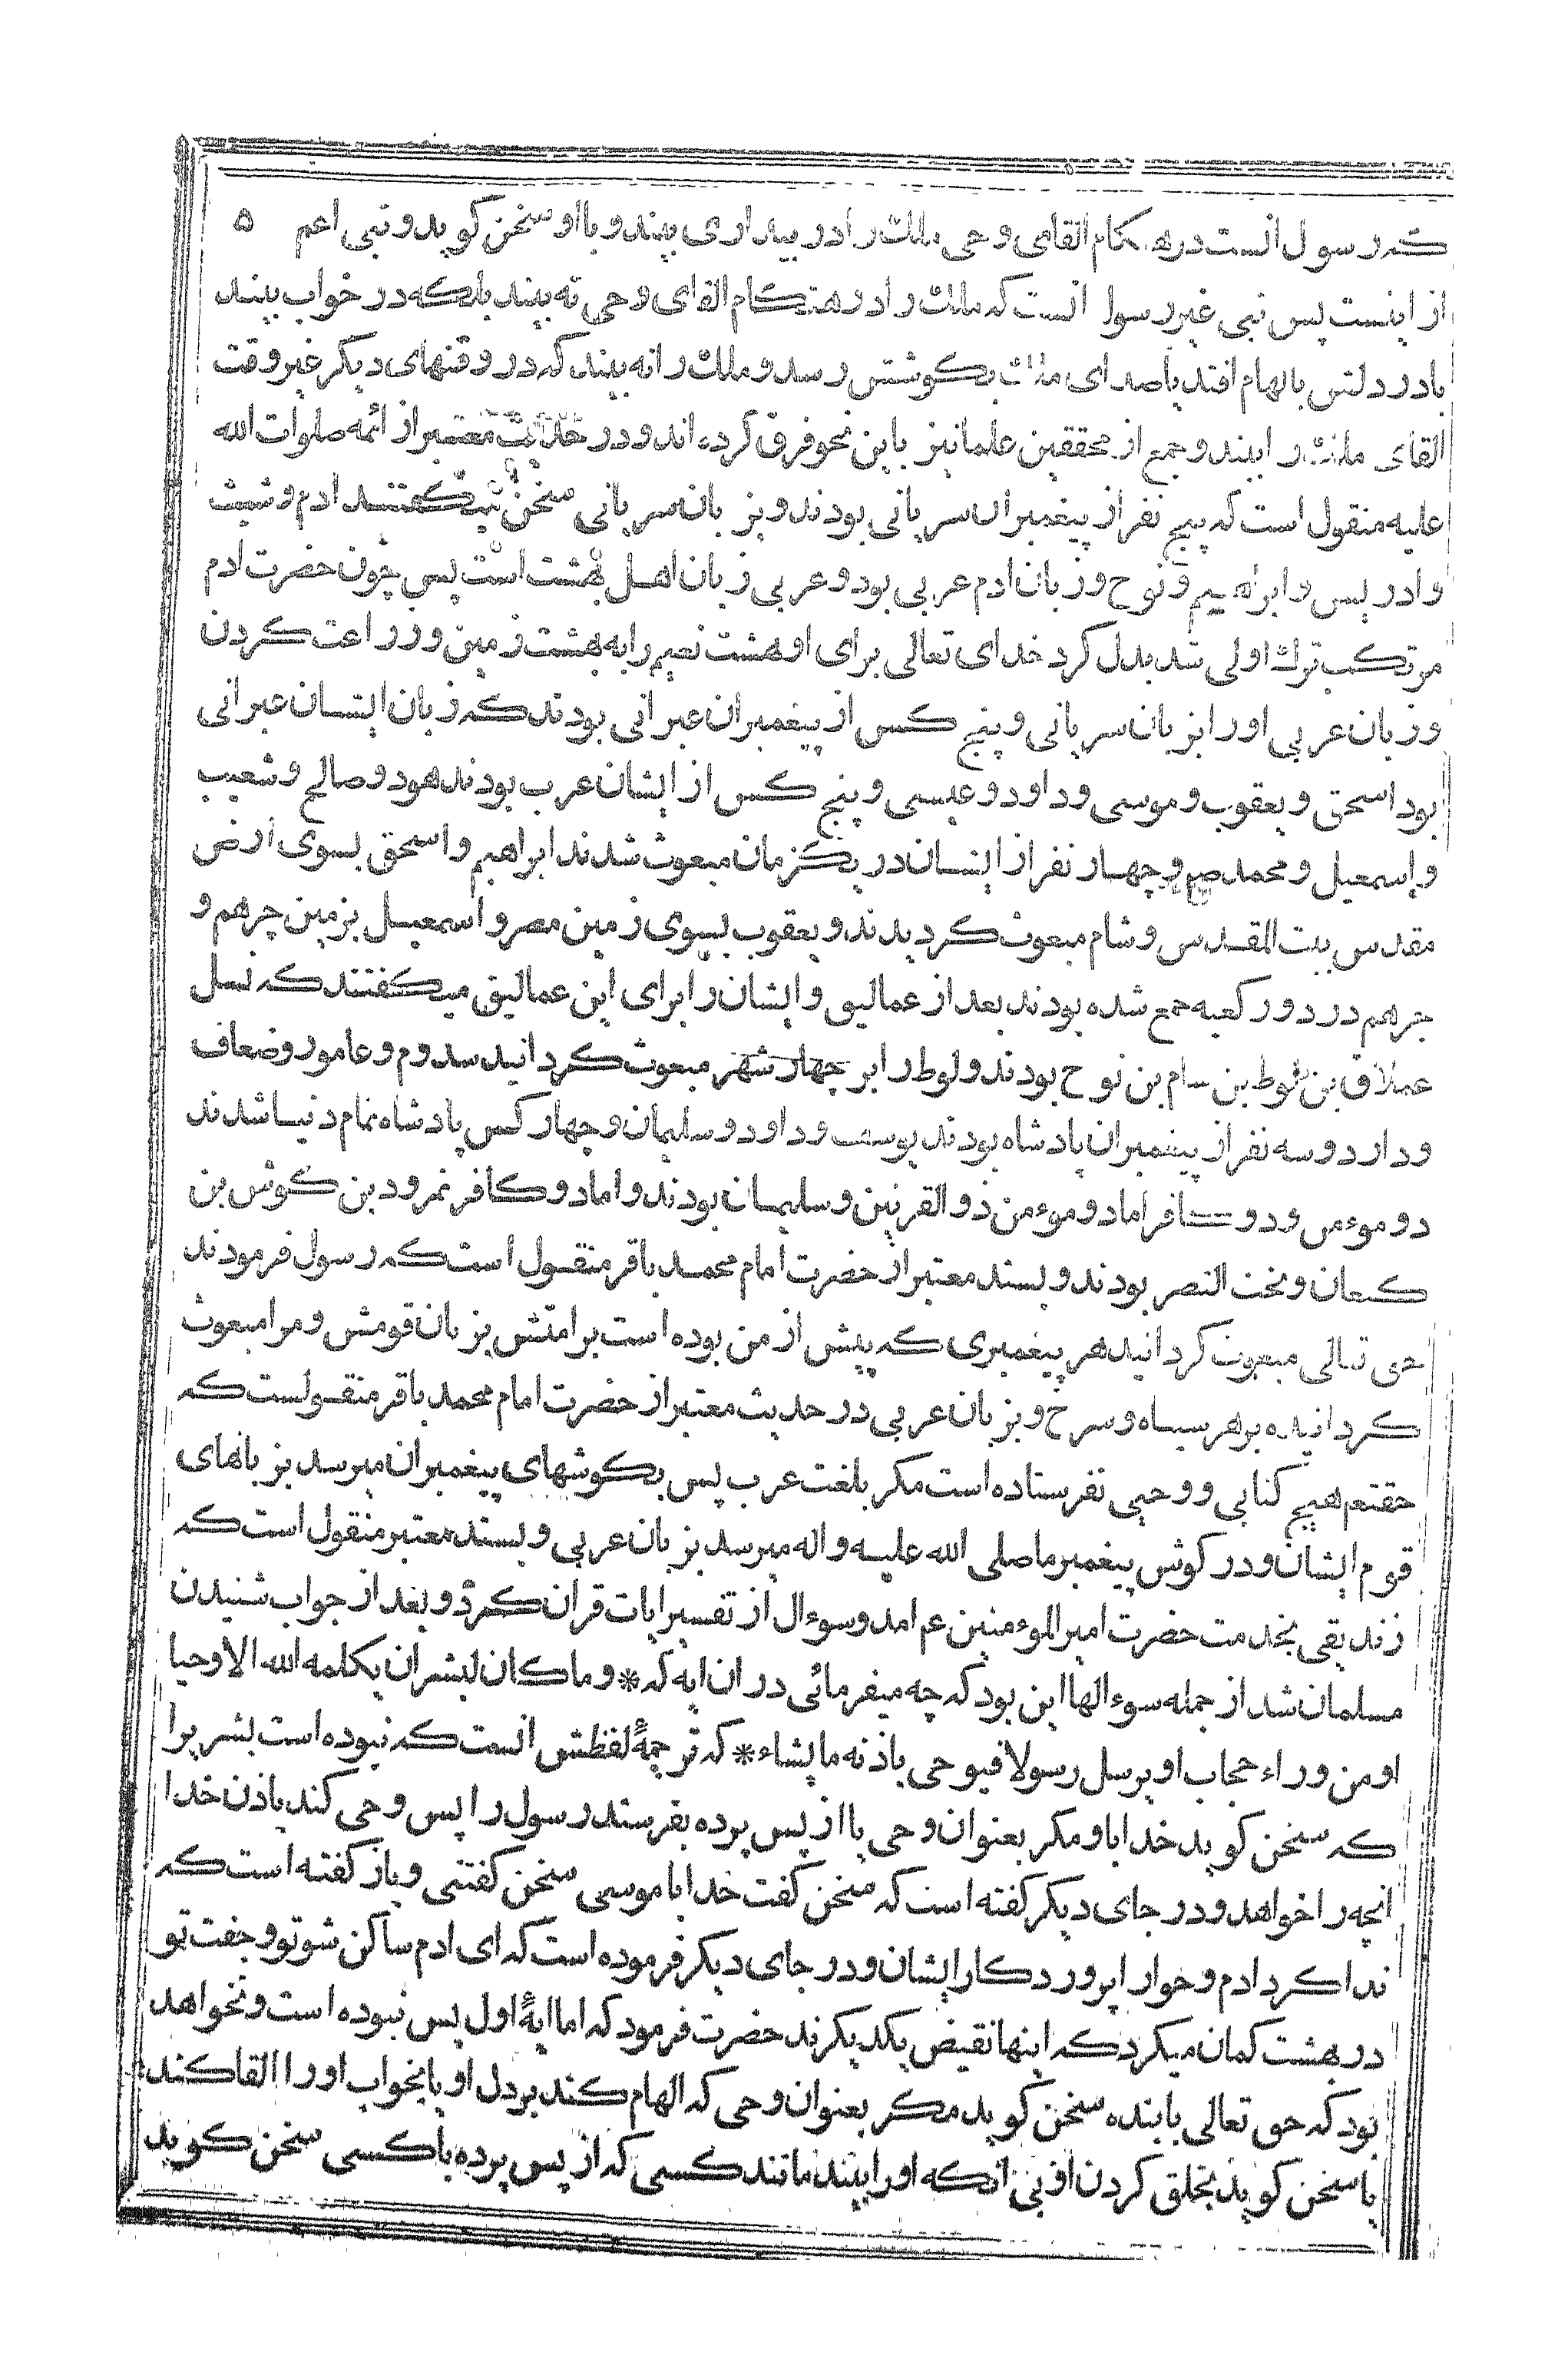 که رسول انست در هنکام القای وحی ملک را در بیداری بیند و با او سخن کوید و نبی اعم ۵
از اینست پس نبی غیر رسول انست که ملک را در هنکام القای وحی نه بیند بلکه در خواب بیند
یا در دلش بالهام افتد یا صدای ملک بکوشش رسد و ملک را نه بیند که در وقتهای دیکر غیر وقت
القای ملک را بیند و جمع از محققین علما نیز باین نحو فرق کرده اند و در حدیث معتبر از ائمه صلوات الله
علیه منقول است که پنج نفر از پیغمبران سریانی بودند و بزبان سریانی سخن میکفتند ادم و شیث
و ادریس و ابراهیم و نوح و زبان ادم عربی بود و عربی زبان اهل بهشت است پس چون حضرت ادم
مرتکب ترک اولی شد بدل کرد خدای تعالی برای او هشت نعیم را به بهشت زمین و زراعت کردن
و زبان عربی او را بزبان سریانی و پنج کس از پیغمبران عبرانی بودند که زبان ایشان عبرانی
بود اسحق و یعقوب و موسی و داود و عیسی و پنج کس از ایشان عرب بودند هود و صالح و شعیب
و إسمعیل و محمد صلع و چهار نفر از ایشان در یکزمان مبعوث شدند ابراهیم و اسحق بسوی ارض
مقدس بیت المقدس و شام مبعوث کردیدند و یعقوب بسوی زمین مصر و اسمعیل بزمین جرهم و
جرهم در دور کعبه جمع شده بودند بعد از عمالیق و ایشان را برای این عمالیق میکفتند که نسل
عملاق بن لوط بن سام بن نوح بودند و لوط را بر چهار شهر مبعوث کردانید سدوم و عامور و ضعاف
و دارد و سه نفر از پیغمبران پادشاه بودند یوسف و داود و سلیمان و چهار کس پادشاه تمام دنیا شدند
دو موءمن و دو کافر اما دو موءمن ذو القرنین و سلیمان بودند و اما دو کافر نمرود بن کوش بن
کنعان و بخت النصر بودند و بسند معتبر از حضرت امام محمد باقر منقول است که رسول فرمودند
حق تعالی مبعوث کردانید هر پیغمبری که پیش از من بوده است بر امتش بزبان قومش و مرا مبعوث
کردانیده بر هر سیاه و سرخ و بزبان عربی در حدیث معتبر از حضرت امام محمد باقر منقولست که
حقتعم هیچ کتابی و وحیی نفرستاده است مکر بلغت عرب پس بکوشهای پیغمبران میرسد بزبانهای
قوم ایشان و در کوش پیغمبر ما صلی الله علیه و اله میرسد بزبان عربی و بسند معتبر منقول است که
زندیقی بخدمت حضرت امیر الموءمنین عم امد و سوءال از تفسیر ایات قران کرد و بعد از جواب شنیدن
مسلمان شد از جمله سوءالها این بود که چه میفرمائی در ان ایه که * و ما کان لبشر ان یکلمه الله الا وحیا
او من وراء حجاب او یرسل رسولا فیوحی باذنه ما یشاء * که ترجمهٔ لفظش انست که نبوده است بشریرا
که سخن کوید خدا با و مکر بعنوان وحی یا از پس پرده بفرستد رسول را پس وحی کند باذن خدا
انچه را خواهد و در جای دیکر کفته است که سخن کفت خدا با موسی سخن کفتنی و باز کفته است که
ندا کرد ادم و حوا را پروردکار ایشان و در جای دیکر فرموده است که ای ادم ساکن شو تو و جفت تو
در بهشت کمان میکرد که اینها نقیض یکدیکرند حضرت فرمود که اما ایهٔ اول پس نبوده است و نخواهد
بود که حق تعالی با بنده سخن کوید مکر بعنوان وحی که الهام کند بر دل او یا بخواب او را القا کند
یا سخن کوید بخلق کردن او بی انکه او را بیند مانند کسی که از پس پرده با کسی سخن کوید